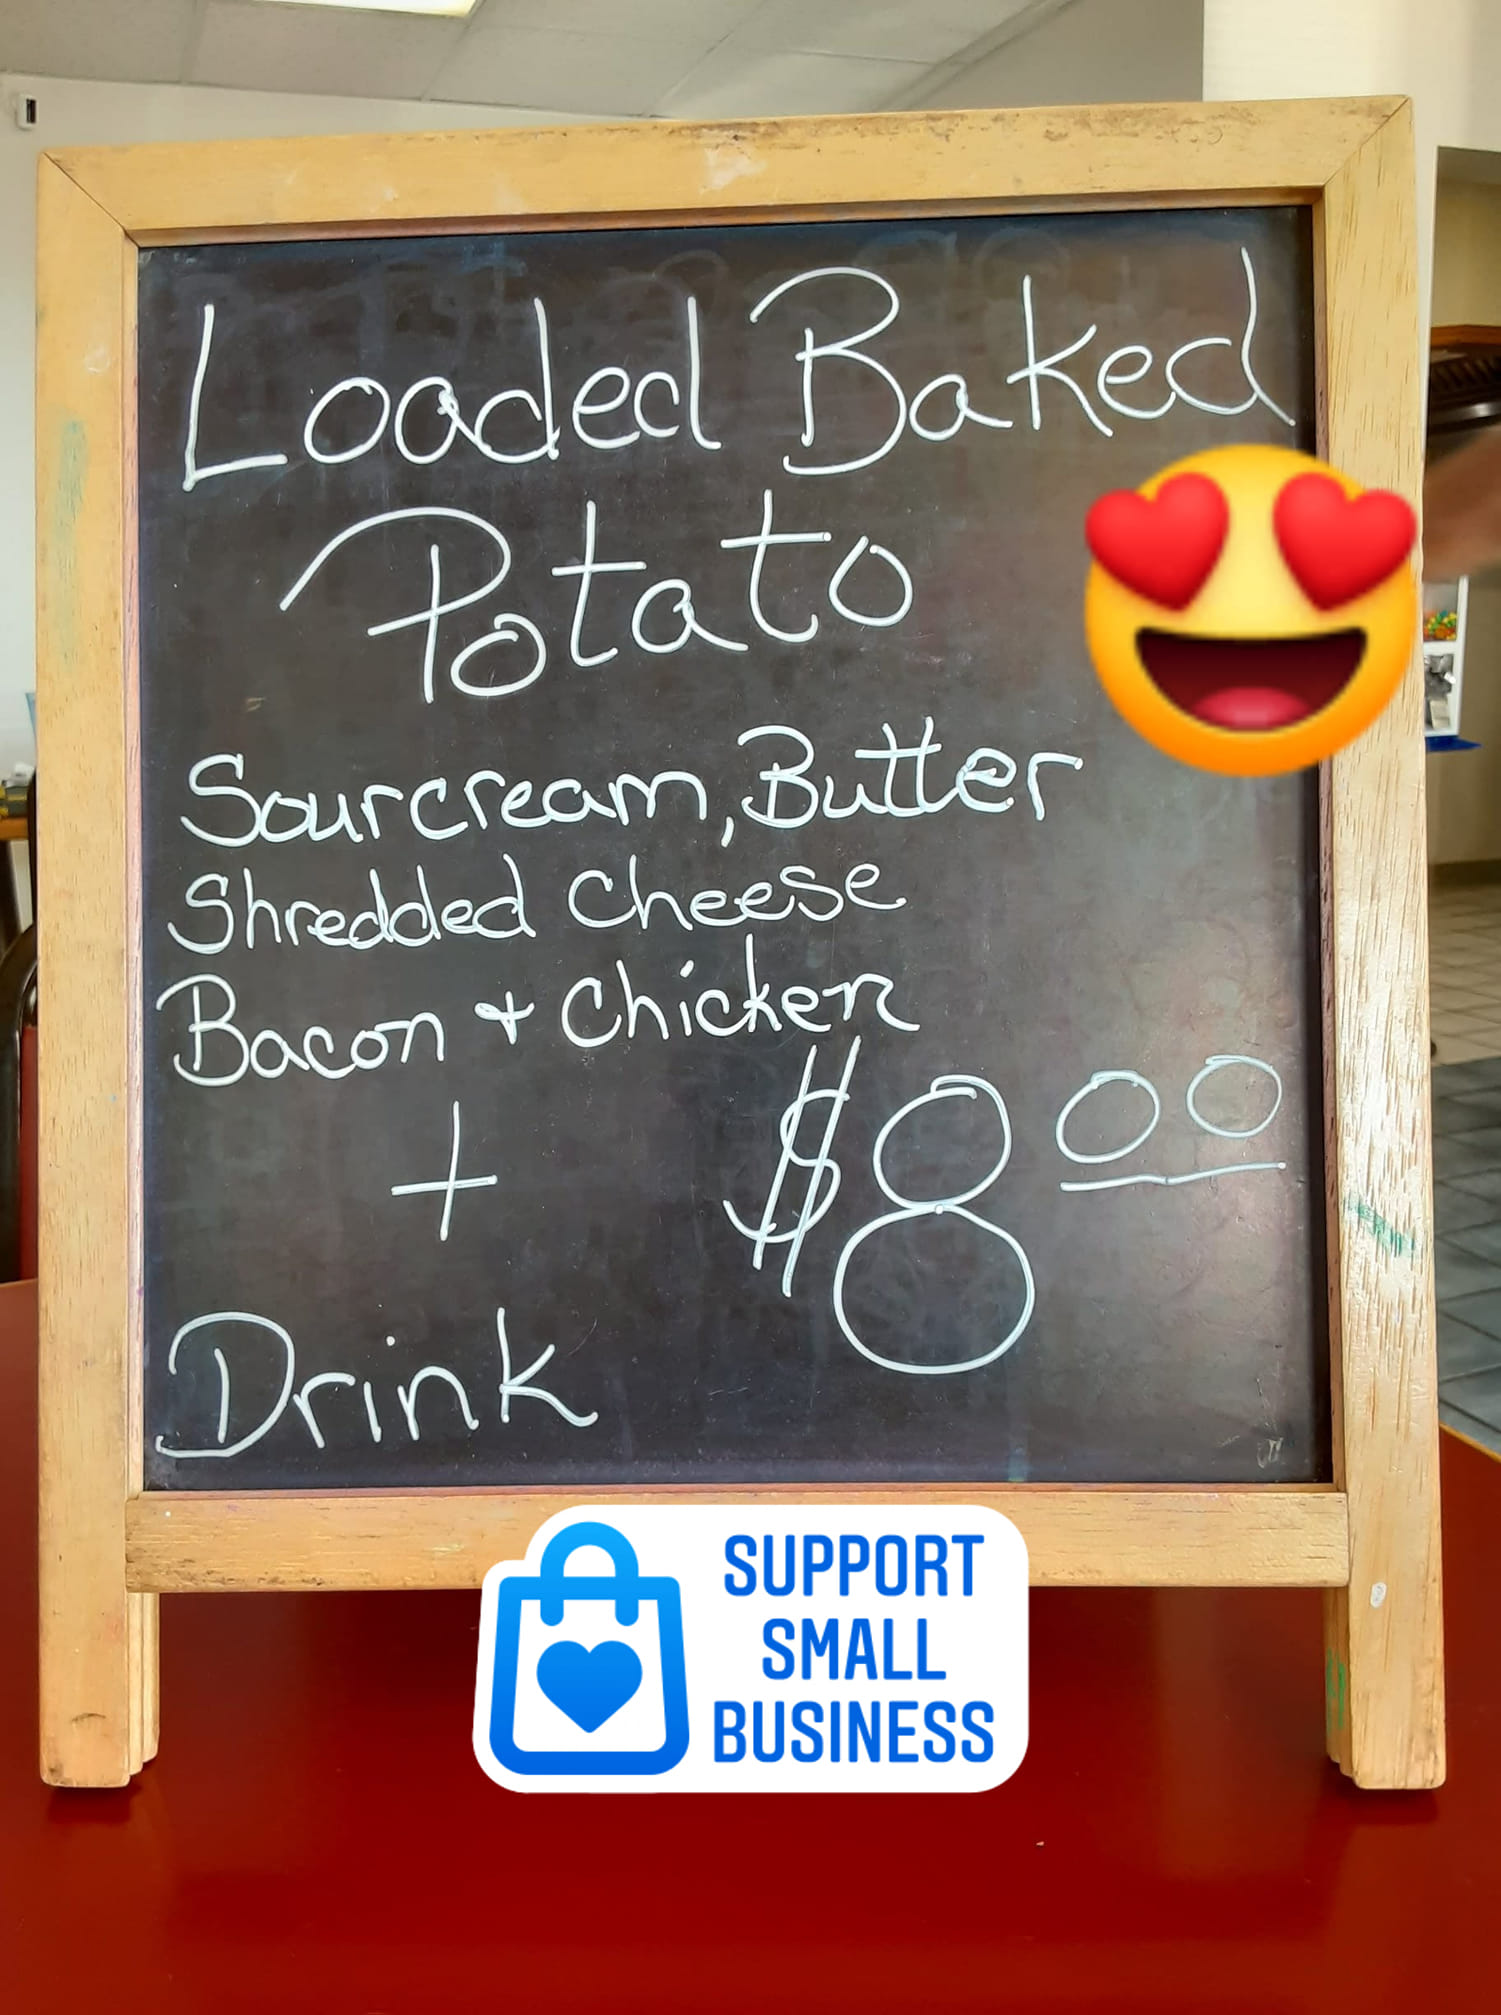 Loaded Baked
Potato
Sourcream, Butter
Shredded Cheese
Bacon + Chicken
+ $8.00
Drink
SUPPORT
SMALL
BUSINESS